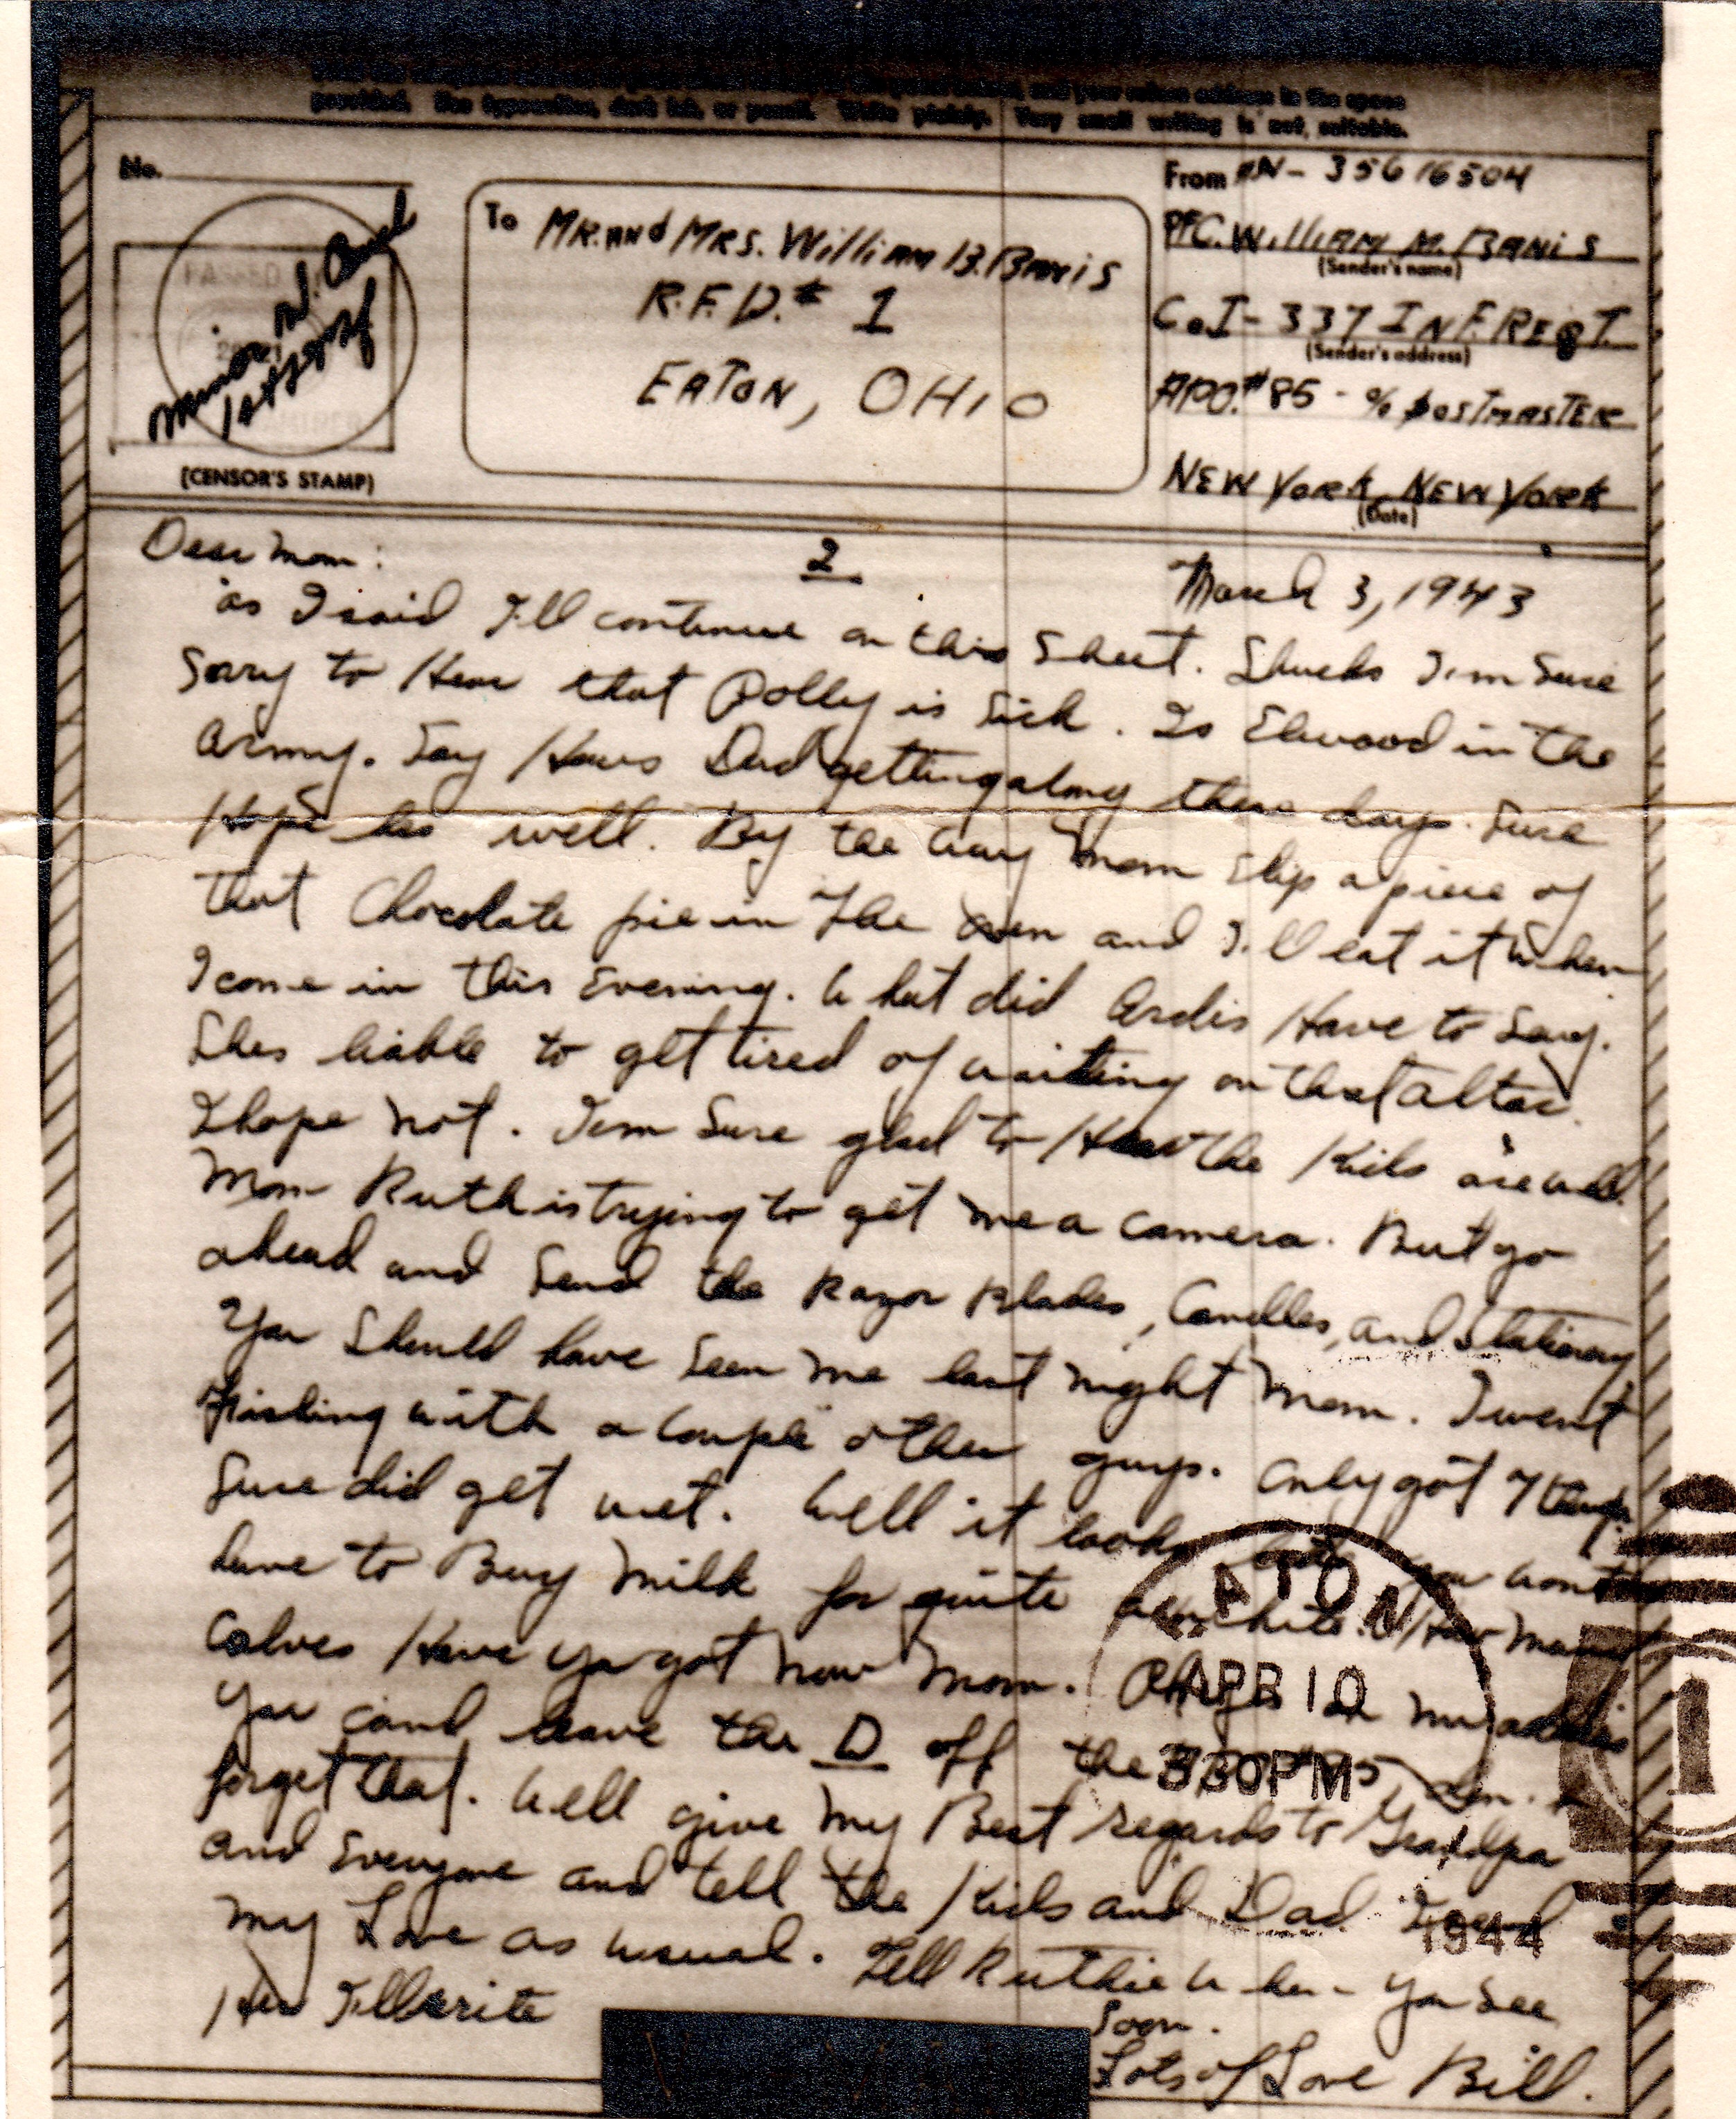 and your return address in the space
provided. Use typewriter, dark ink, or pencil. Write plainly. Very small writing is not suitable.
No.
From 35616504
To Mr. and Mrs. William B. Banis
PFC. William M. Banis
(Sender's name)
R.F.D. # 1
Co. I - 337 Inf. Regt.
(Sender's address)
Eaton, Ohio
APO. #85 - % Postmaster
New York, New York
(Date)
PASSED
(CENSOR'S STAMP)
Dear Mom:
2
March 3, 1943
as I said I'll continue on this Sheet. Shucks I'm Sure
Sorry to Hear that Polly is Sick. Is Elwood in the
Army. Say Hows Dad getting along these days. Sure
Hope hes well. By the way Mom Slip a piece of
that Chocolate pie in the oven and I'll eat it when
I come in this Evening. What did Ardis Have to Say.
Shes liable to get tired of waiting on that altar.
I hope not. I'm Sure glad to Hear the Kids are well.
Mom Ruth is trying to get me a camera. But go
ahead and Send the Razor Blades, Candles, and Stationery
You Should have Seen me last night Mom. I went
Fishing with a couple other guys. Only got 7 though.
Sure did get wet. Well it looks like you wont
have to Buy Milk for quite awhile. How many
Calves Have ya got now Mom. my address
You can leave the D off the
forget that. Well give my Best regards to Grandpa
and Everyone and tell the Kids and Dad I send
my Love as usual. Tell Ruthie when you see
Her I'll write
Soon.
Lots of Love Bill.
EATON
APR 10
330 PM
1944